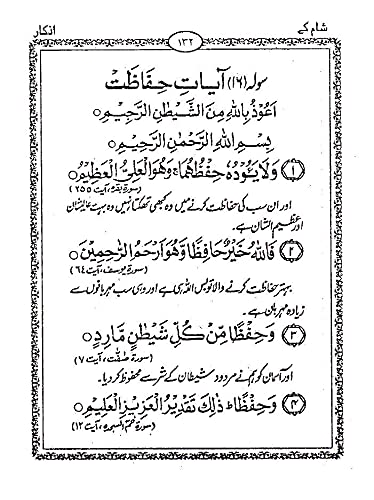 شام کے
۱۳۲
اذکار
سولہ (۱۶) آیاتِ حِفَاظَتْ
اَعُوْذُ بِاللّٰهِ مِنَ الشَّيْطٰنِ الرَّجِيْمِ ○
بِسْمِ اللّٰهِ الرَّحْمٰنِ الرَّحِيْمِ ○
۱ وَلَا يَـُٔوْدُهٗ حِفْظُهُمَا وَهُوَ الْعَلِيُّ الْعَظِيْمُ ○
(سورۃ بقرہ، آیت ۲۵۵)
اور ان سب کی حفاظت کرنے میں وہ کبھی تھکتا نہیں وہ بہت عالیشان
اور عظیم الشان ہے۔
۲ فَاللّٰهُ خَيْرٌ حَافِظًا وَّهُوَ اَرْحَمُ الرّٰحِمِيْنَ ○
(سورۃ یوسف، آیت ۶۴)
بہتر حفاظت کرنے والا تو بس اللہ ہی ہے اور وہی سب مہربانوں سے
زیادہ مہربان ہے۔
۳ وَحِفْظًا مِّنْ كُلِّ شَيْطٰنٍ مَّارِدٍ ○
(سورۃ صٰفّٰت، آیت ۷)
اور آسمان کو ہم نے مردود شیطان کے شر سے محفوظ کر دیا۔
۴ وَحِفْظًا ؕ ذٰلِكَ تَقْدِيْرُ الْعَزِيْزِ الْعَلِيْمِ ○
(سورۃ حٰمٓ السجدہ، آیت ۱۲)